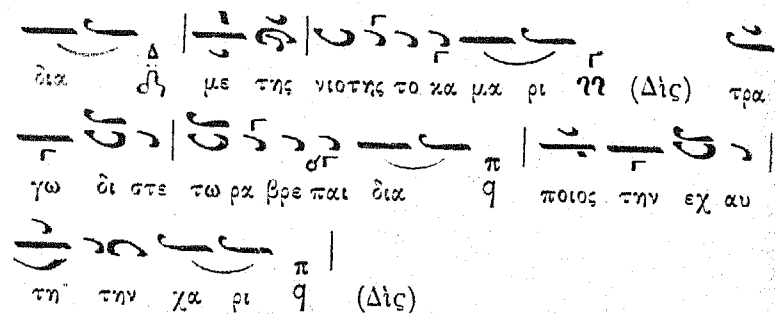 δια Δ με της νιοτης το κα μα ρι (Δὶς) τρα
γω δι στε τω ρα βρε παι δια π q ποιος την εχ αυ
τη την χα ρι π q (Δὶς)